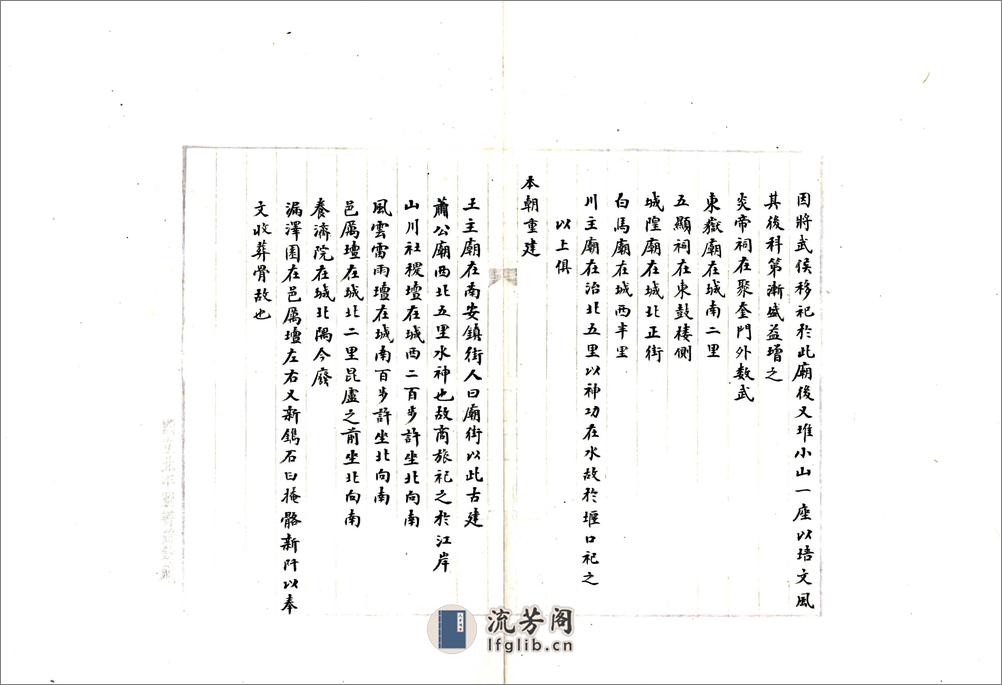 因將武侯移祀於此廟後又堆小山一座以培文風
其後科第漸盛益增之
炎帝祠在聚奎門外数武
東嶽廟在城南二里
五顯祠在東鼓楼側
城隍廟在城北正街
白馬廟在城西半里
川主廟在治北五里以神功在水故於堰口祀之
以上俱
本朝重建
王主廟在南安鎮街人曰廟街以此古建
蕭公廟西北五里水神也故商旅祀之於江岸
山川社稷壇在城西二百步許坐北向南
風雲雷雨壇在城南百步許坐北向南
邑厲壇在城北二里昆盧之前坐北向南
養濟院在城北隅今廢
漏澤園在邑厲壇左右又新鐫石曰掩骼新阡以奉
文收葬骨故也
流芳阁
lfglib.cn